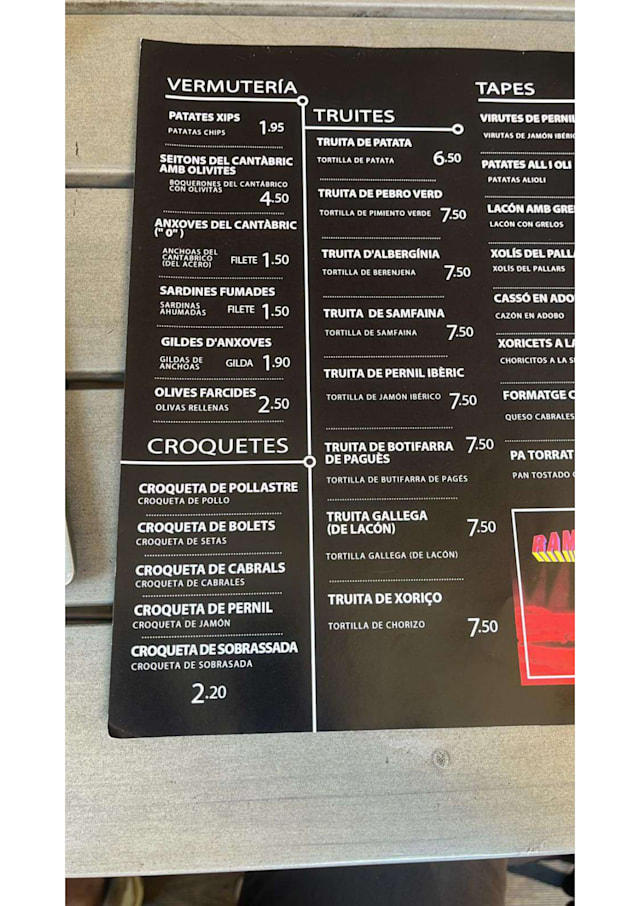 VERMUTERÍA
PATATES XIPS
PATATAS CHIPS 1.95
SEITONS DEL CANTÀBRIC
AMB OLIVITES
BOQUERONES DEL CANTÁBRICO
CON OLIVITAS
4.50
ANXOVES DEL CANTÀBRIC
(" 0" )
ANCHOAS DEL
CANTÁBRICO
(DEL ACERO) FILETE 1.50
SARDINES FUMADES
SARDINAS
AHUMADAS FILETE 1.50
GILDES D'ANXOVES
GILDAS DE
ANCHOAS GILDA 1.90
OLIVES FARCIDES
OLIVAS RELLENAS 2.50
CROQUETES
CROQUETA DE POLLASTRE
CROQUETA DE POLLO
CROQUETA DE BOLETS
CROQUETA DE SETAS
CROQUETA DE CABRALS
CROQUETA DE CABRALES
CROQUETA DE PERNIL
CROQUETA DE JAMÓN
CROQUETA DE SOBRASSADA
CROQUETA DE SOBRASADA
2.20
TRUITES
TRUITA DE PATATA
TORTILLA DE PATATA 6.50
TRUITA DE PEBRO VERD
TORTILLA DE PIMIENTO VERDE 7.50
TRUITA D'ALBERGÍNIA
TORTILLA DE BERENJENA 7.50
TRUITA DE SAMFAINA
TORTILLA DE SAMFAINA 7.50
TRUITA DE PERNIL IBÈRIC
TORTILLA DE JAMÓN IBÉRICO 7.50
TRUITA DE BOTIFARRA 7.50
DE PAGUÈS
TORTILLA DE BUTIFARRA DE PAGÉS
TRUITA GALLEGA
(DE LACÓN) 7.50
TORTILLA GALLEGA (DE LACÓN)
TRUITA DE XORIÇO
TORTILLA DE CHORIZO 7.50
TAPES
VIRUTES DE PERNIL
VIRUTAS DE JAMÓN IBÉRIC
PATATES ALL I OLI
PATATAS ALIOLI
LACÓN AMB GRE
LACÓN CON GRELOS
XOLÍS DEL PALLA
XOLÍS DEL PALLARS
CASSÓ EN ADO
CAZÓN EN ADOBO
XORICETS A LA
CHORICITOS A LA S
FORMATGE C
QUESO CABRALES
PA TORRAT
PAN TOSTADO C